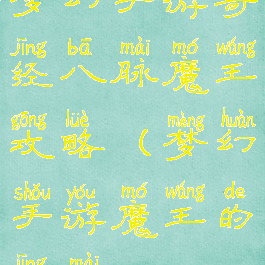 jīng bā mài mó wáng
经八脉魔王
gōng lüè mèng huàn
攻略（梦幻
shǒu yóu mó wáng de
手游魔王的
jīng mài